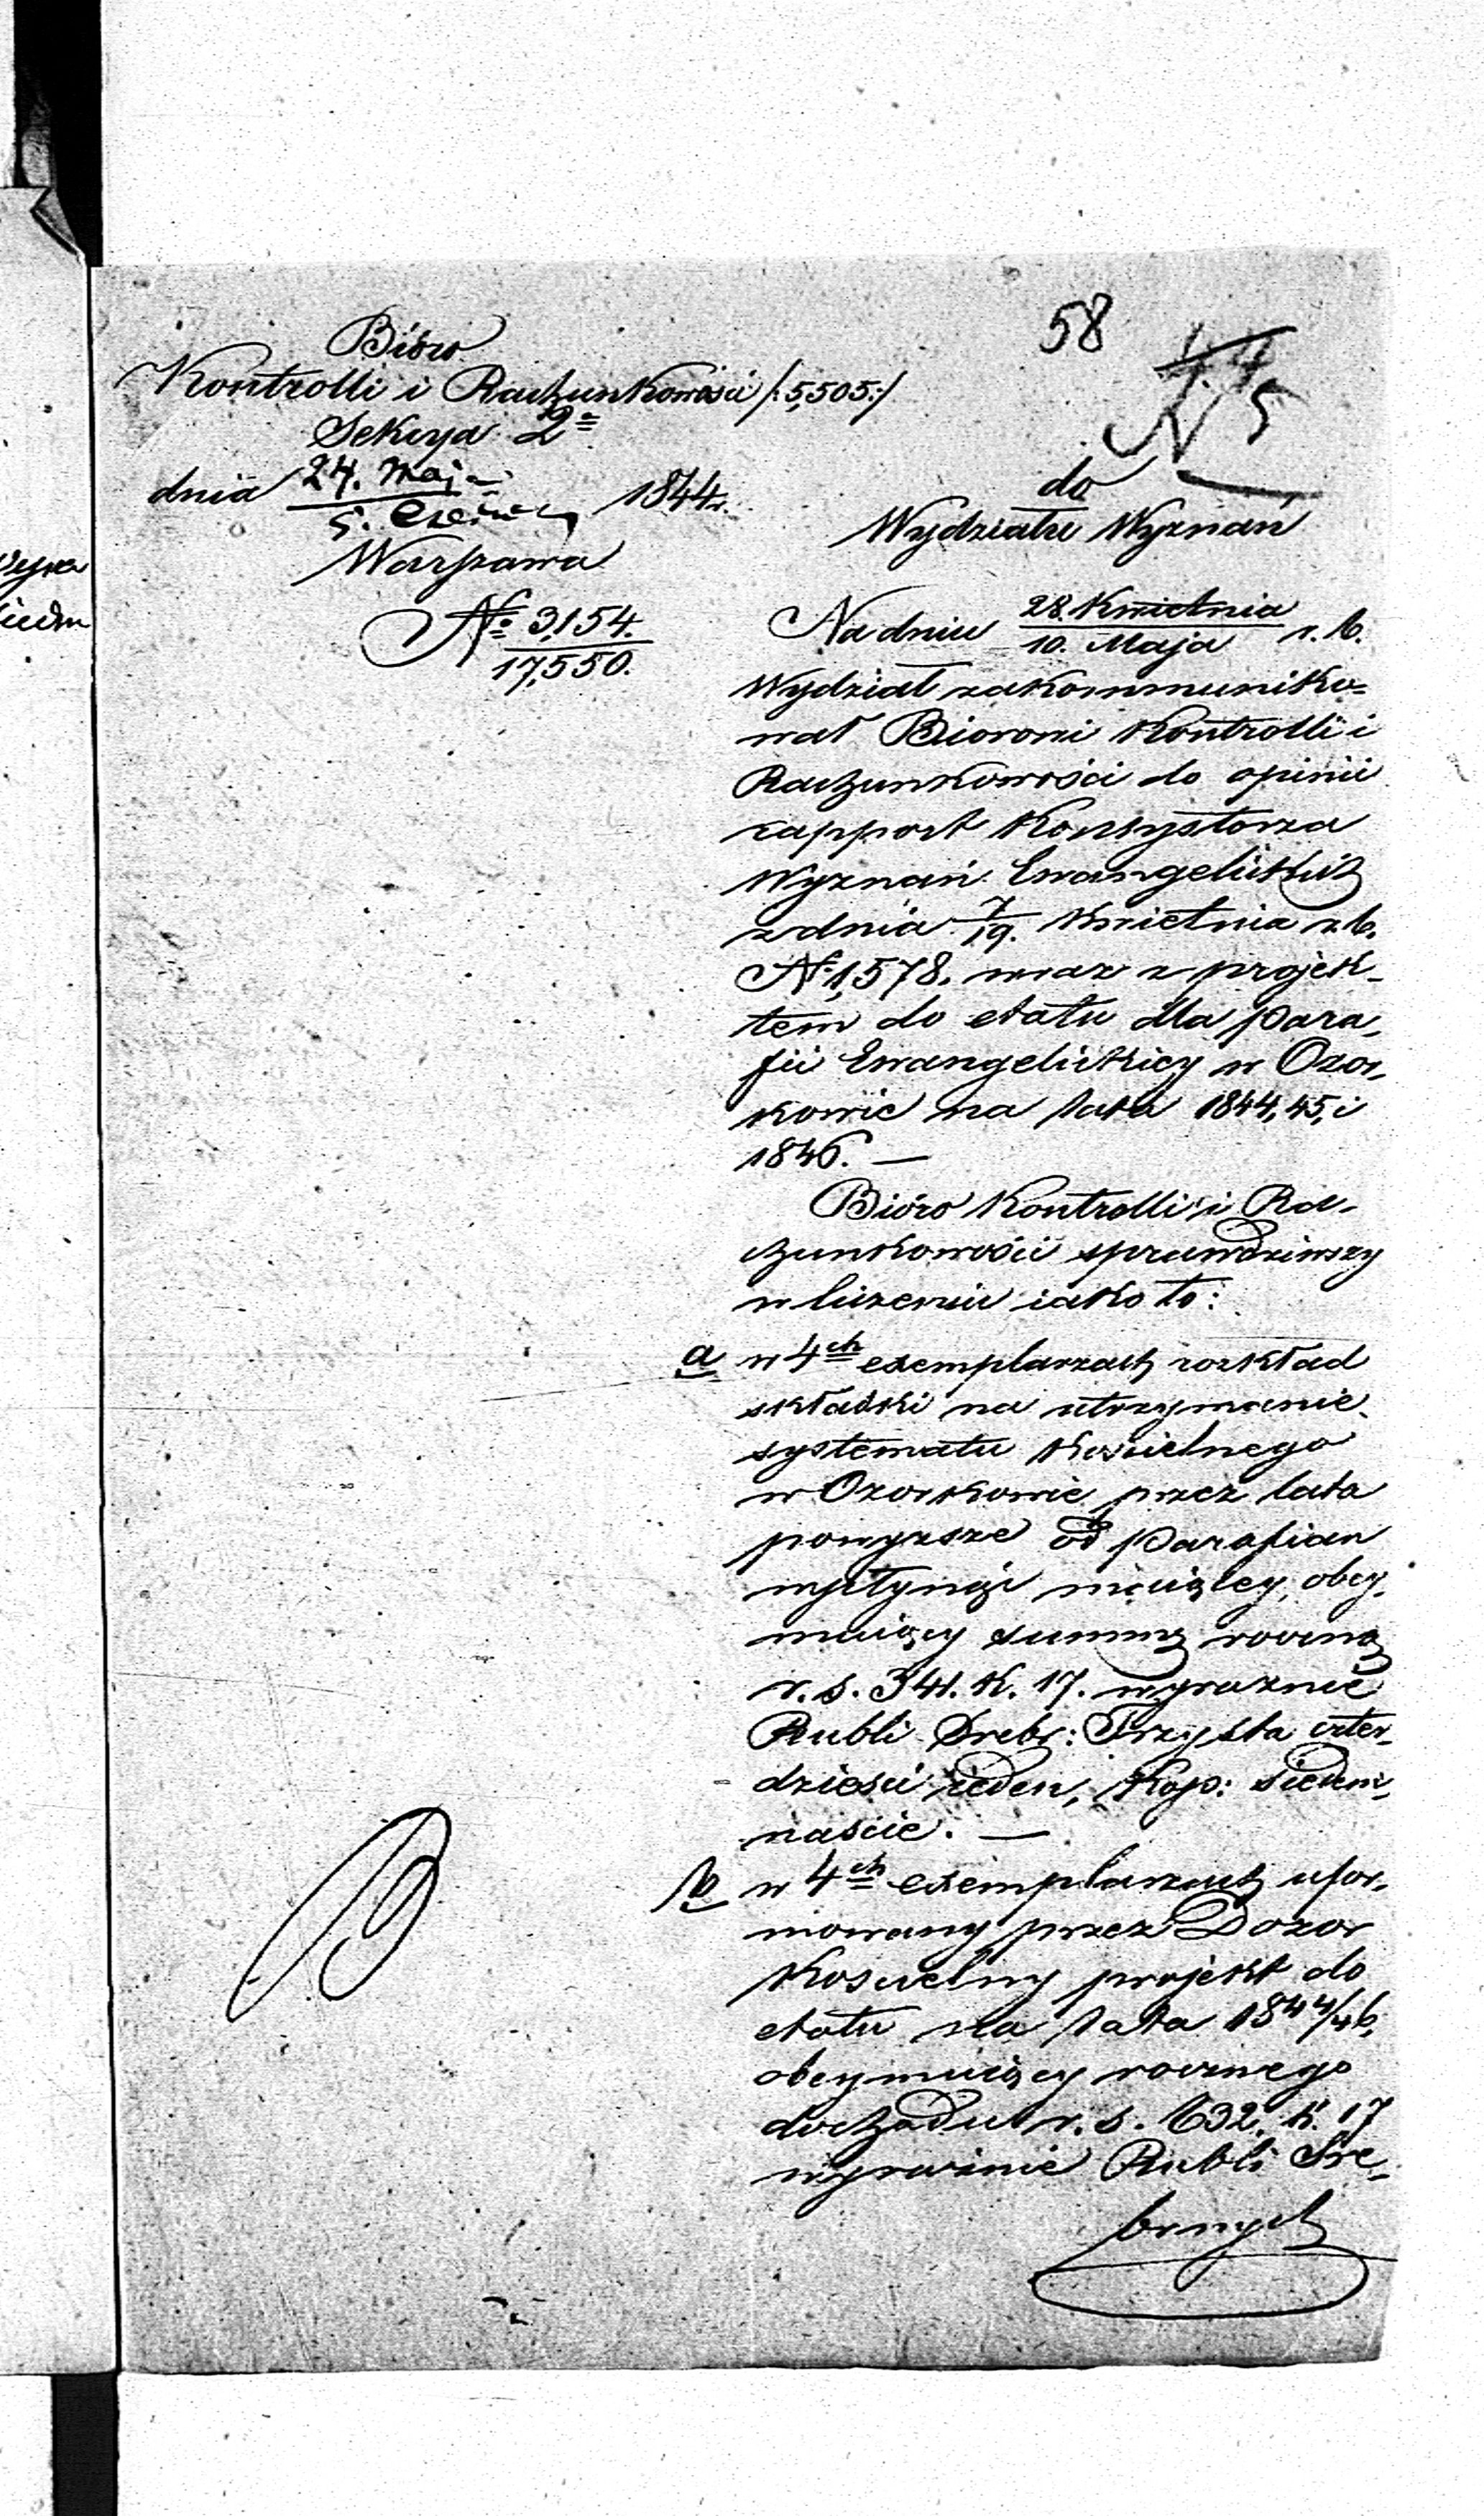 58
Bióro
Kontrolli i Rachunkowości /:5,505:/
Sekcya 2ª
dnia 24. Maja / 5. Czerwca 1844r.
Warszawa
№ 3,154. / 17,550.
N 5
do
Wydziału Wyznań
Na dniu 28. Kwietnia / 10. Maja r. b.
Wydział zakommuniko=
wał Biorowi Kontrolli i
Rachunkowości do opinii
rapport Konsystorza
Wyznań Ewangelickich
z dnia 7/19. Kwietnia r. b.
N. 1,578. wraz z projek-
tem do etatu dla para,
fii Ewangelickiey w Ozor,
kowie na lata 1844, 45, i
1846. —
Bióro Kontrolli i Ra-
chunkowości sprawdziwszy
w liczeniu iako to:
a w 4ch exemplarzach rozkład
składki na utrzymanie
systematu Kościelnego
w Ozorkowie przez lata
powyższe od parafian
wpłynąć maiącey, obey,
muiący summę roczną
r. s. 341. k. 17. wyraźnie
Rubli Srebr: Trzysta czter,
dzieści ieden, Kop: siedm,
naście. —
b w 4ch exemplarzach ufor,
mowany przez Dozor
Kościelny projekt do
etatu na lata 1844/46,
obeymuiący rocznego
dochodu r. s. 632, k. 17
wyraźnie Rubli Sre,
brnych